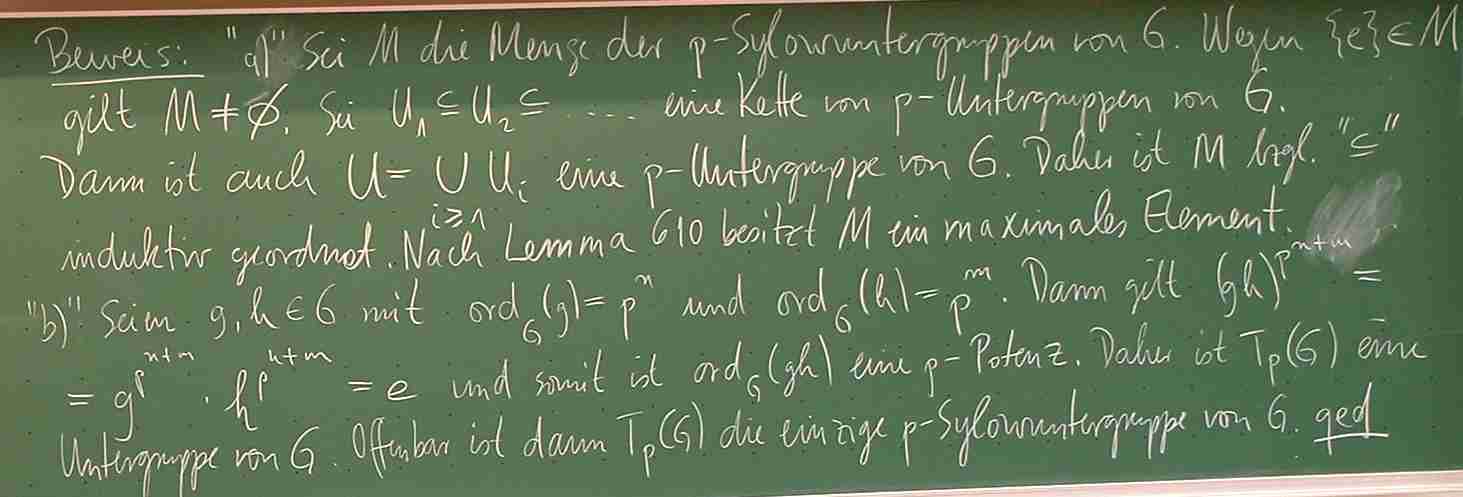 Beweis: "a)" Sei M die Menge der p-Sylowuntergruppen von G. Wegen {e} ∈ M
gilt M ≠ ∅. Sei U₁ ⊆ U₂ ⊆ .... eine Kette von p-Untergruppen von G.
Dann ist auch U = ∪_{i≥1} U_i eine p-Untergruppe von G. Daher ist M bzgl. "⊆"
induktiv geordnet. Nach Lemma 610 besitzt M ein maximales Element.
"b)" Seien g, h ∈ G mit ord_G(g) = p^n und ord_G(h) = p^m. Dann gilt (gh)^{p^{n+m}} =
= g^{p^{n+m}} · h^{p^{n+m}} = e und somit ist ord_G(gh) eine p-Potenz. Daher ist T_p(G) eine
Untergruppe von G. Offenbar ist dann T_p(G) die einzige p-Sylowuntergruppe von G. qed